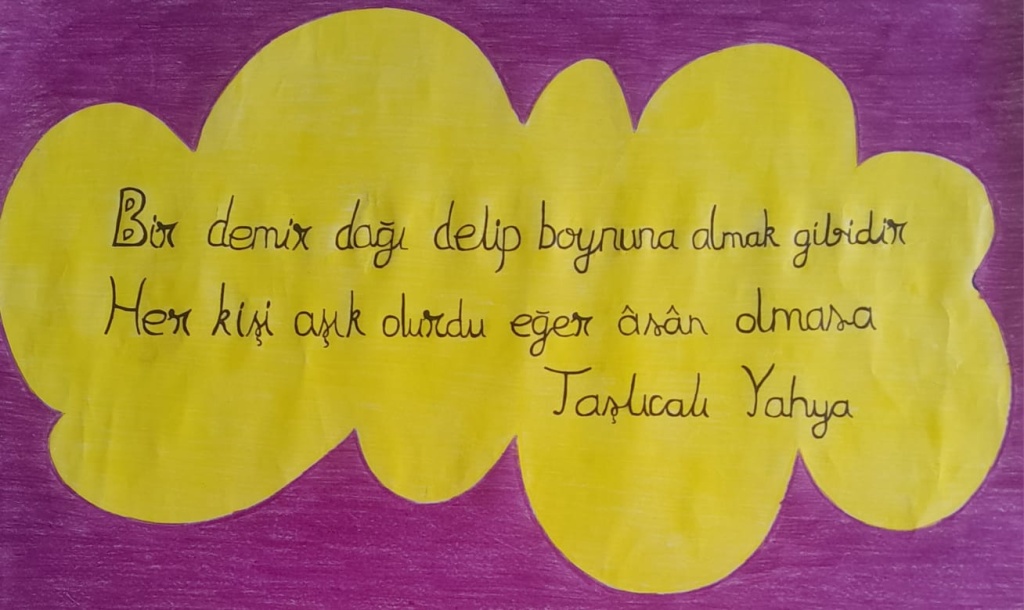 Bir demir dağı delip boynuna almak gibidir
Her kişi aşık olurdu eğer âsân olmasa
Taşlıcalı Yahya